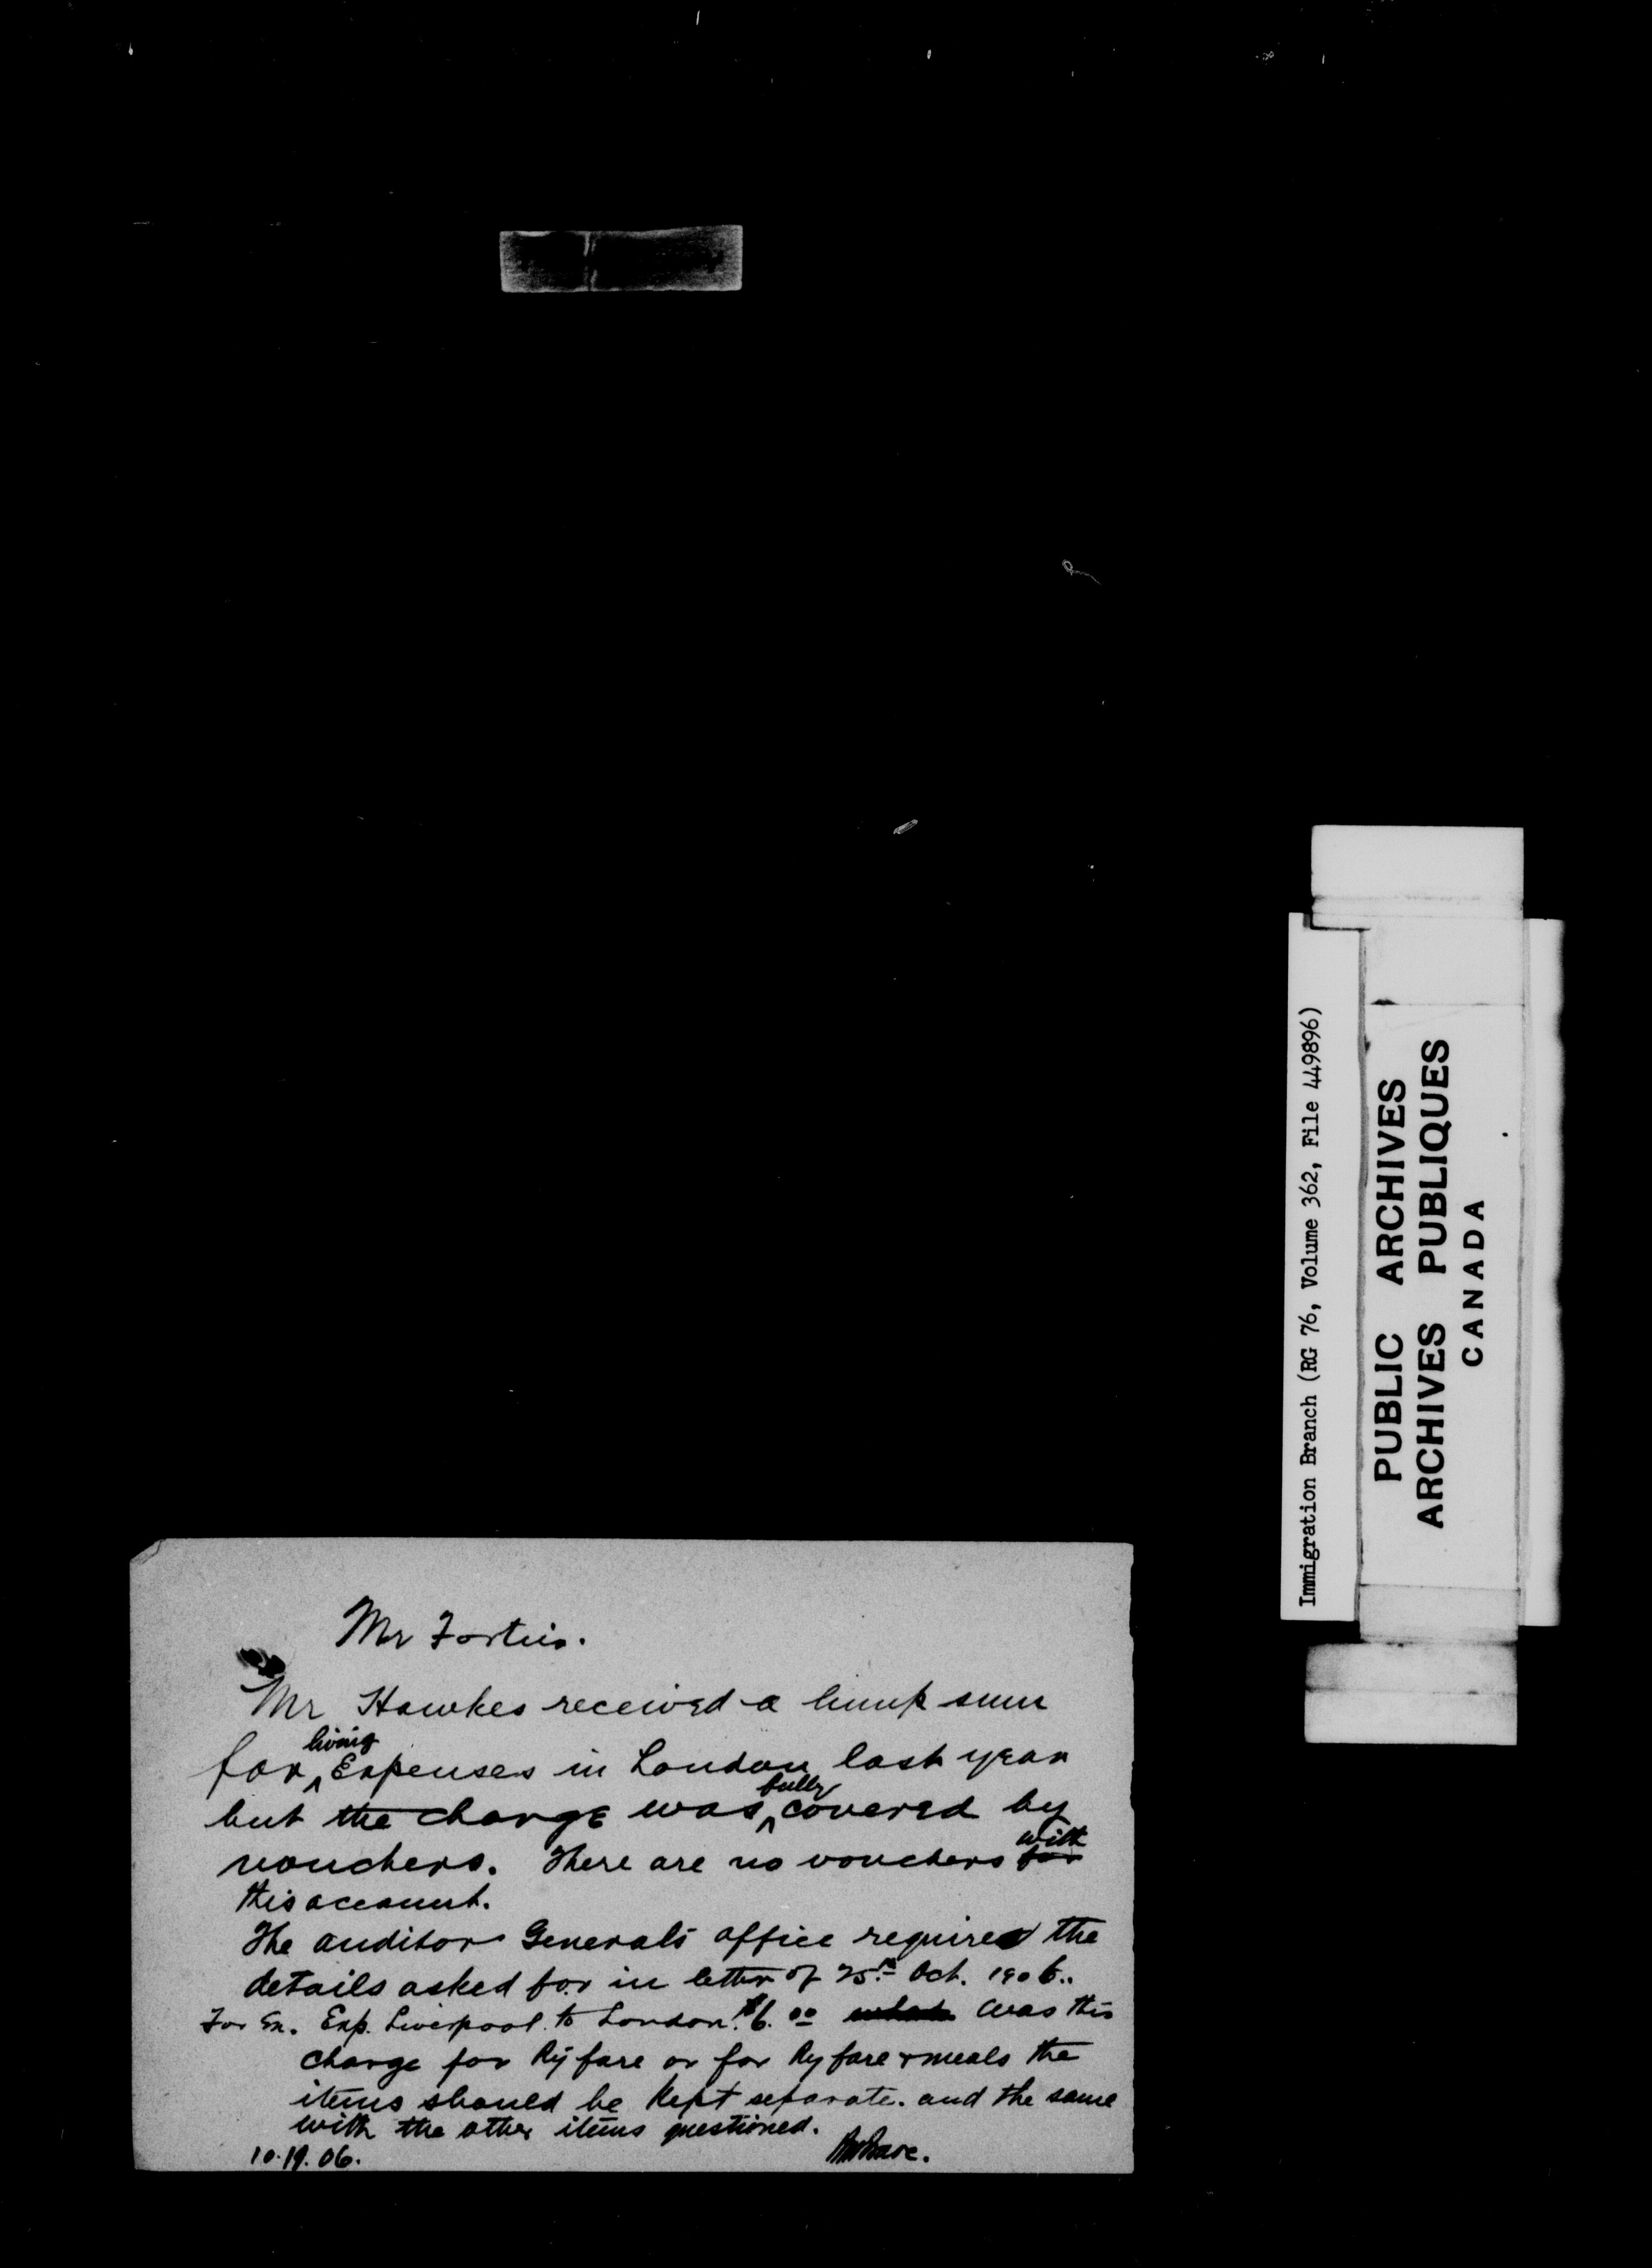 Mr Fortier.
Mr Hawkes received a lump sum
for living Expenses in London last year
but the charge was fully covered by
vouchers. There are no vouchers with
this account.
The auditor Generals office required the
details asked for in letter of 25th Oct. 1906..
For Ex. Exp. Liverpool to London. $6.00 was this
charge for Ry fare or for Ry fare & meals the
items should be kept separate. and the same
with the other items questioned.
10.19.06.
Immigration Branch (RG 76, Volume 362, File 449896)
PUBLIC ARCHIVES
ARCHIVES PUBLIQUES
CANADA